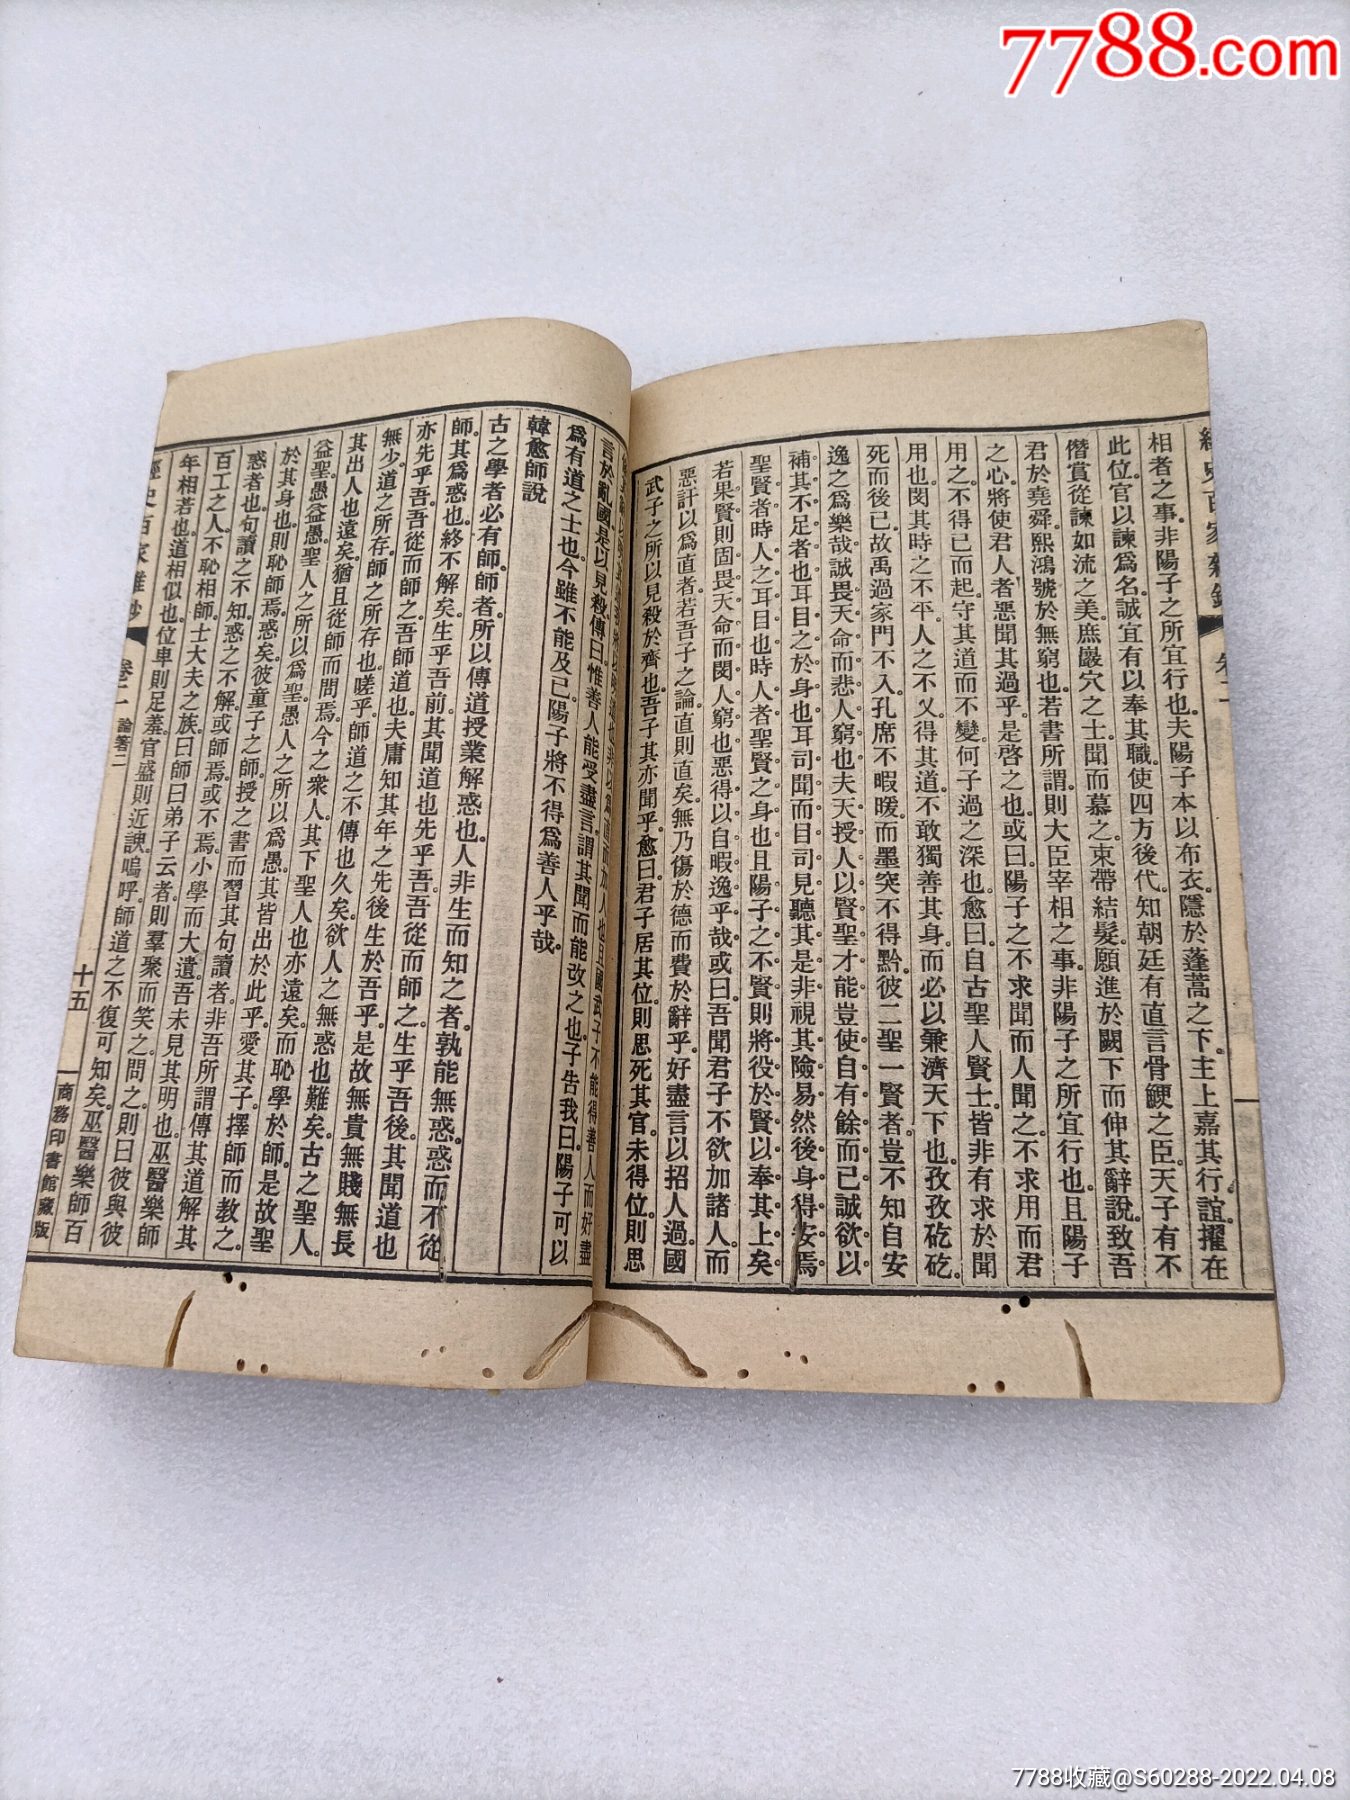 7788.com
相者之事非陽子之所宜行也夫陽子本以布衣隱於蓬蒿之下主上嘉其行誼擢在
此位官以諫爲名誠宜有以奉其職使四方後代知朝廷有直言骨鯁之臣天子有不
僭賞從諫如流之美庶巖穴之士聞而慕之束帶結髮願進於闕下而伸其辭說致吾
君於堯舜熙鴻號於無窮也若書所謂則大臣宰相之事非陽子之所宜行也且陽子
之心將使君人者惡聞其過乎是啓之也或曰陽子之不求聞而人聞之不求用而君
用之不得已而起守其道而不變何子過之深也愈曰自古聖人賢士皆非有求於聞
用也閔其時之不平人之不乂得其道不敢獨善其身而必以兼濟天下也孜孜矻矻
死而後已故禹過家門不入孔席不暇暖而墨突不得黔彼二聖一賢者豈不知自安
逸之爲樂哉誠畏天命而悲人窮也夫天授人以賢聖才能豈使自有餘而已誠欲以
補其不足者也耳目之於身也耳司聞而目司見聽其是非視其險易然後身得安焉
聖賢者時人之耳目也時人者聖賢之身也且陽子之不賢則將役於賢以奉其上矣
若果賢則固畏天命而閔人窮也惡得以自暇逸乎哉或曰吾聞君子不欲加諸人而
惡訐以爲直者若吾子之論直則直矣無乃傷於德而費於辭乎好盡言以招人過國
武子之所以見殺於齊也吾子其亦聞乎愈曰君子居其位則思死其官未得位則思
言於亂國是以見殺傳曰惟善人能受盡言謂其聞而能改之也子告我曰陽子可以
爲有道之士也今雖不能及已陽子將不得爲善人乎哉
韓愈師說
古之學者必有師師者所以傳道授業解惑也人非生而知之者孰能無惑惑而不從
師其爲惑也終不解矣生乎吾前其聞道也先乎吾吾從而師之生乎吾後其聞道也
亦先乎吾吾從而師之吾師道也夫庸知其年之先後生於吾乎是故無貴無賤無長
無少道之所存師之所存也嗟乎師道之不傳也久矣欲人之無惑也難矣古之聖人
其出人也遠矣猶且從師而問焉今之衆人其下聖人也亦遠矣而恥學於師是故聖
益聖愚益愚聖人之所以爲聖愚人之所以爲愚其皆出於此乎愛其子擇師而教之
於其身也則恥師焉惑矣彼童子之師授之書而習其句讀者非吾所謂傳其道解其
惑者也句讀之不知惑之不解或師焉或不焉小學而大遺吾未見其明也巫醫樂師
百工之人不恥相師士大夫之族曰師曰弟子云者則羣聚而笑之問之則曰彼與彼
年相若也道相似也位卑則足羞官盛則近諛嗚呼師道之不復可知矣巫醫樂師百
經史百家雜鈔 卷二 論著二 十五 商務印書館藏版
7788收藏@S60288-2022.04.08